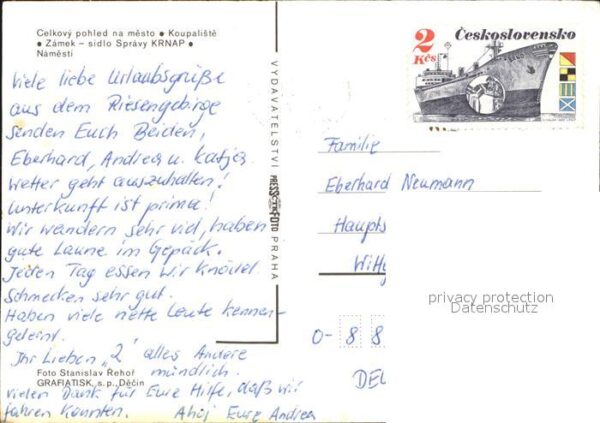 Celkový pohled na město • Koupaliště
• Zámek – sídlo Správy KRNAP •
Náměstí
Viele liebe Urlaubsgrüße
aus dem Riesengebirge
senden Euch Beiden,
Eberhard, Andrea u. Katja.
Wetter geht auszuhalten!
Unterkunft ist prima!
Wir wandern sehr viel, haben
gute Laune im Gepäck.
Jeden Tag essen wir Knödel.
Schmecken sehr gut.
Haben viele nette Leute kennen-
gelernt.
Ihr Lieben „2" alles Andere
mündlich.
Foto Stanislav Řehoř
GRAFIATISK, s.p., Děčín
vielen Dank für Eure Hilfe, daß wir
fahren konnten. Ahoj Eure Andrea
VYDAVATELSTVÍ PRESSFOTO PRAHA
2 Kčs
Československo
Familie
Eberhard Neumann
Haupts
Witt
O- 8 8
DE
privacy protection
Datenschutz